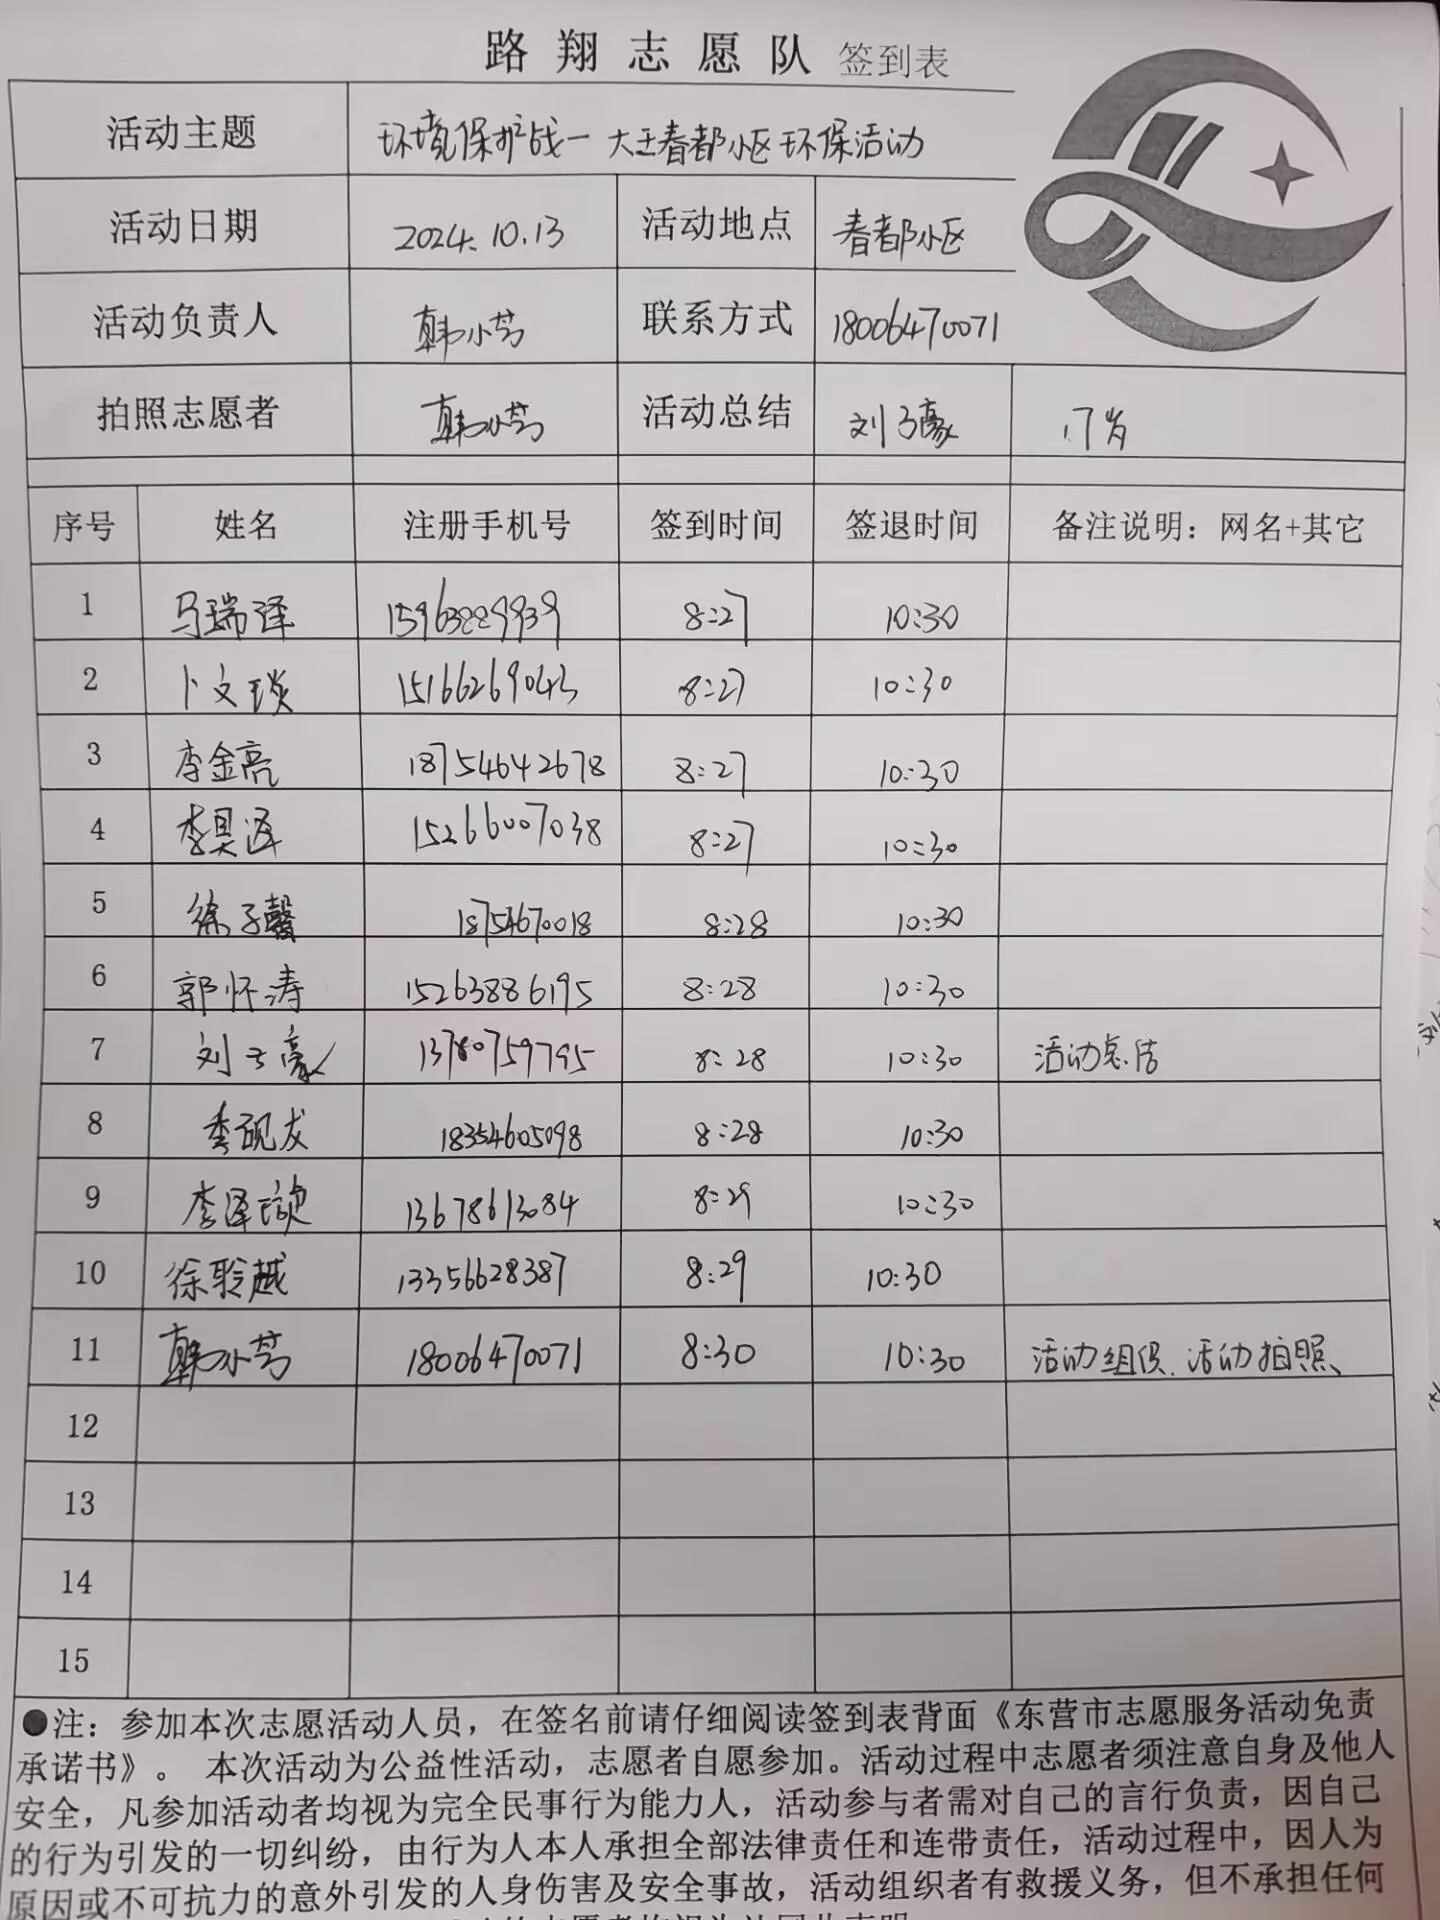 路翔志愿队 签到表
活动主题 环境保护战一大王春都小区环保活动
活动日期 2024.10.13 活动地点 春都小区
活动负责人 韩小芳 联系方式 18006470071
拍照志愿者 韩小芳 活动总结 刘子豪 17岁
序号 姓名 注册手机号 签到时间 签退时间 备注说明：网名+其它
1 马瑞泽 15963889939 8:27 10:30
2 卜文琰 15166269043 8:27 10:30
3 李金亮 18754642678 8:27 10:30
4 李昊泽 15266007038 8:27 10:30
5 徐子馨 18754670018 8:28 10:30
6 郭怀涛 15263886195 8:28 10:30
7 刘子豪 13780759795 8:28 10:30 活动总结
8 李砚友 18354605098 8:28 10:30
9 李泽 13678613084 8:29 10:30
10 徐聆越 13356628387 8:29 10:30
11 韩小芳 18006470071 8:30 10:30 活动组织、活动拍照
12
13
14
15
●注：参加本次志愿活动人员，在签名前请仔细阅读签到表背面《东营市志愿服务活动免责
承诺书》。 本次活动为公益性活动，志愿者自愿参加。活动过程中志愿者须注意自身及他人
安全，凡参加活动者均视为完全民事行为能力人，活动参与者需对自己的言行负责，因自己
的行为引发的一切纠纷，由行为人本人承担全部法律责任和连带责任，活动过程中，因人为
原因或不可抗力的意外引发的人身伤害及安全事故，活动组织者有救援义务，但不承担任何